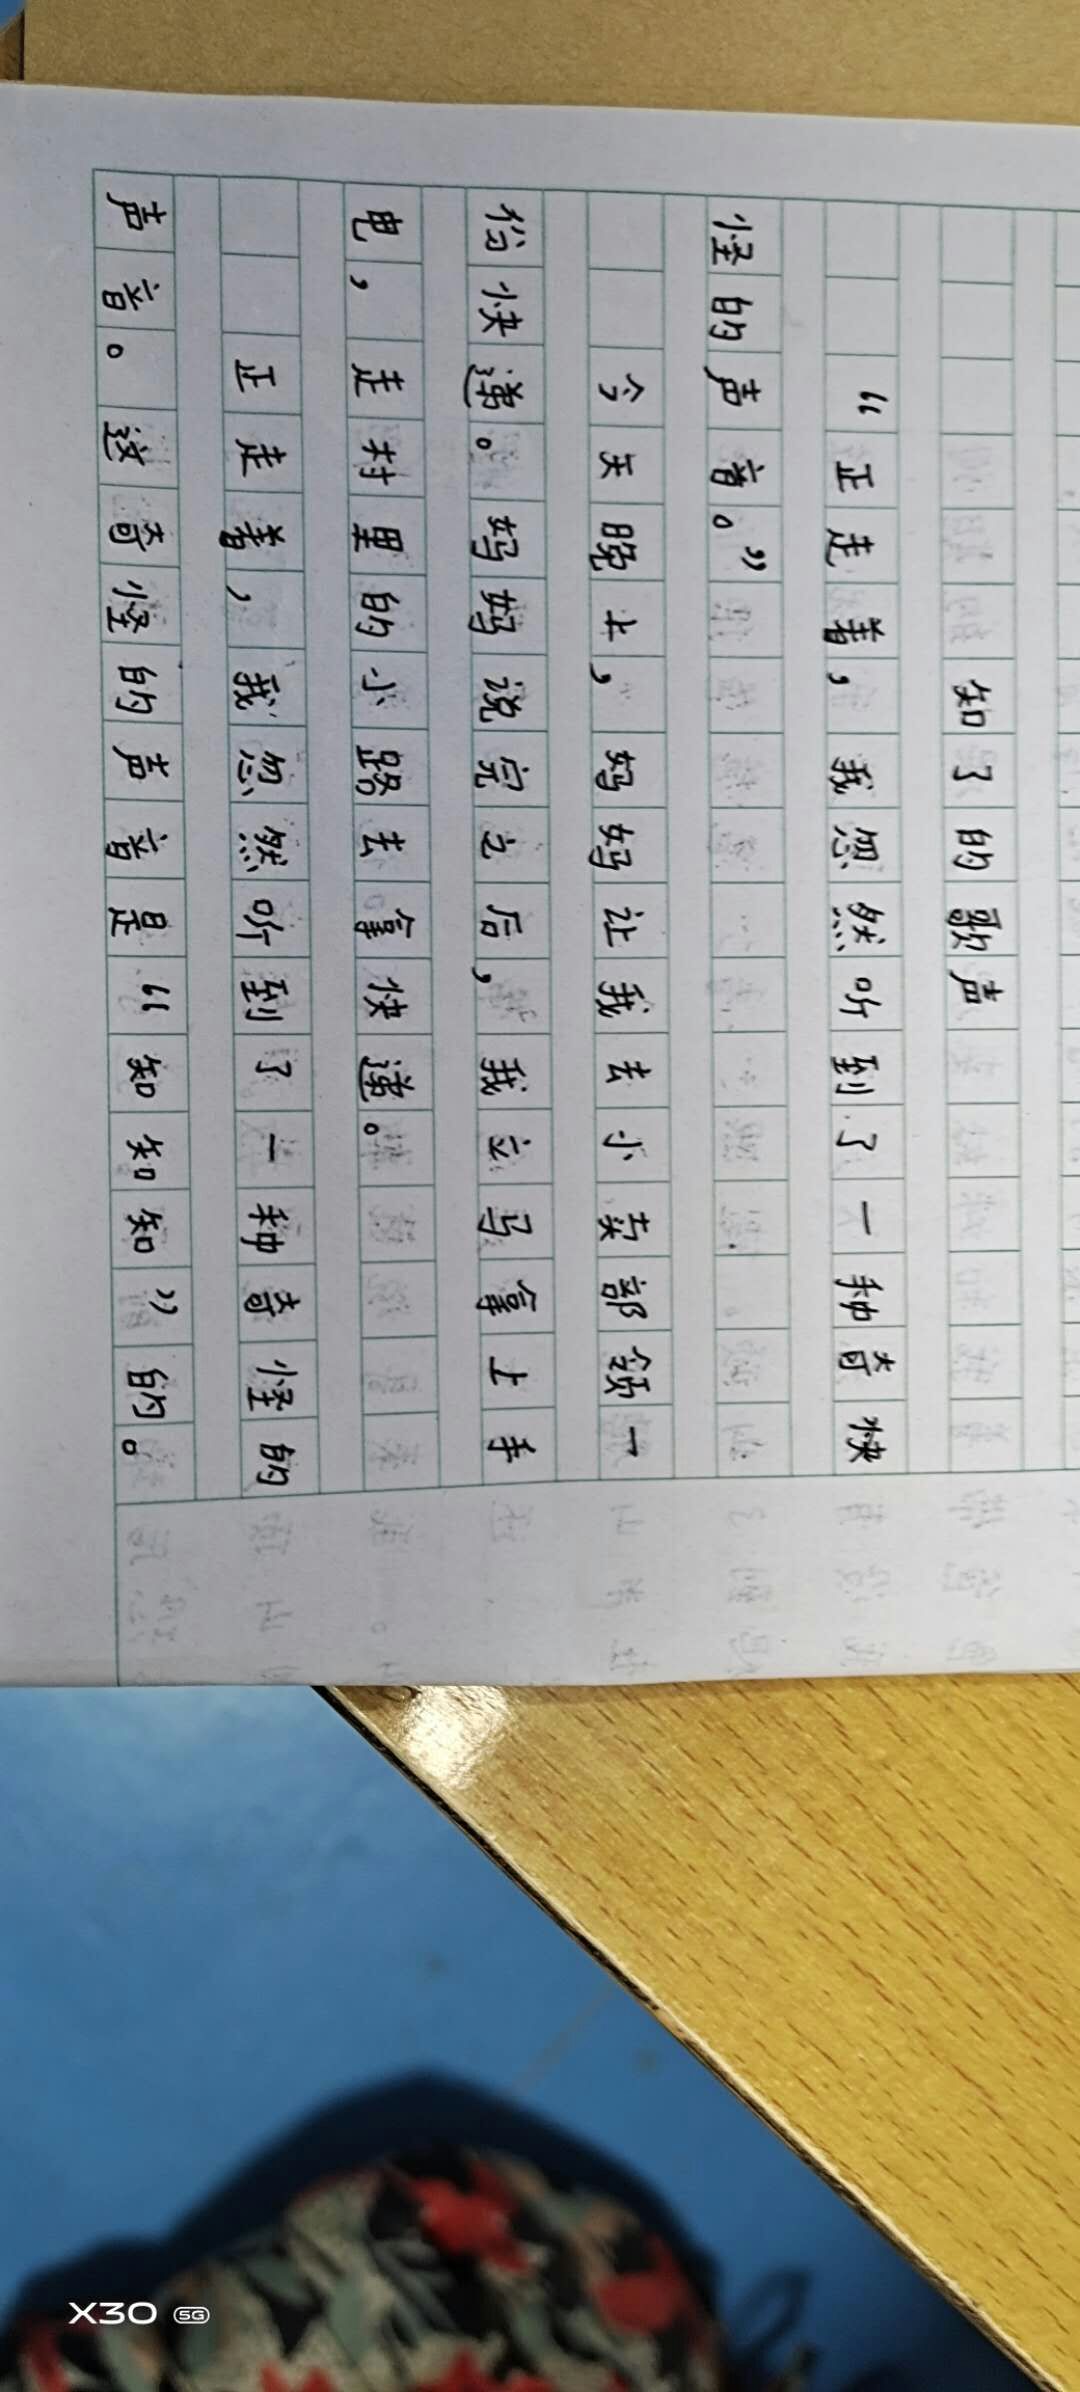 知了的歌声
“正走着，我忽然听到了一种奇快
怪的声音。”
今天晚上，妈妈让我去小卖部领一
份快递。妈妈说完之后，我立马拿上手
电，走村里的小路去拿快递。
正走着，我忽然听到了一种奇怪的
声音。这奇怪的声音是“知知知”的。
X30 5G